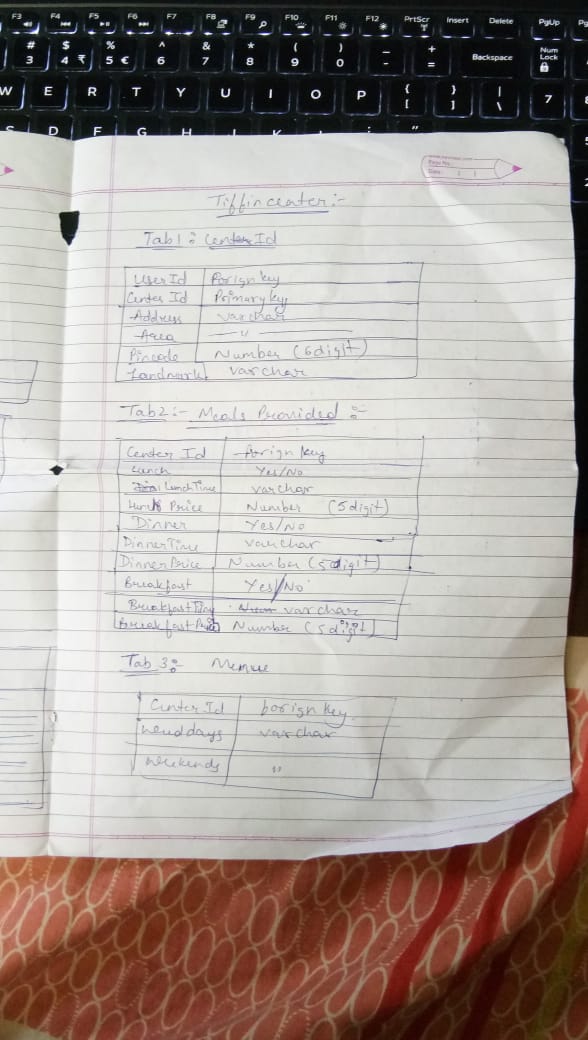 F3 F4 F5 F6 F7 F8 F9 F10 F11 F12 PrtScr Insert Delete PgUp
# $ % ^ & * ( ) - + Backspace Num Lock
3 4 ₹ 5 € 6 7 8 9 0 - =
W E R T Y U I O P { [ } ] | \ 7
D F G H
Page No.
Date:
Tiffin center :-
Tab 1 : Center Id
User Id Forign key
Center Id Primary key
Address varchar
Area — " —
Pincode Number (6 digit)
Landmark varchar
Tab 2 :- Meals Provided :-
Center Id forign key
Lunch Yes/No
Lunch Time varchar
Lunch Price Number (5 digit)
Dinner Yes/No
Dinner Time varchar
Dinner Price Number (5 digit)
Breakfast Yes/No
Breakfast Time varchar
Breakfast Price Number (5 digit)
Tab 3 : Menue
Center Id forign key
varchar
weekends "